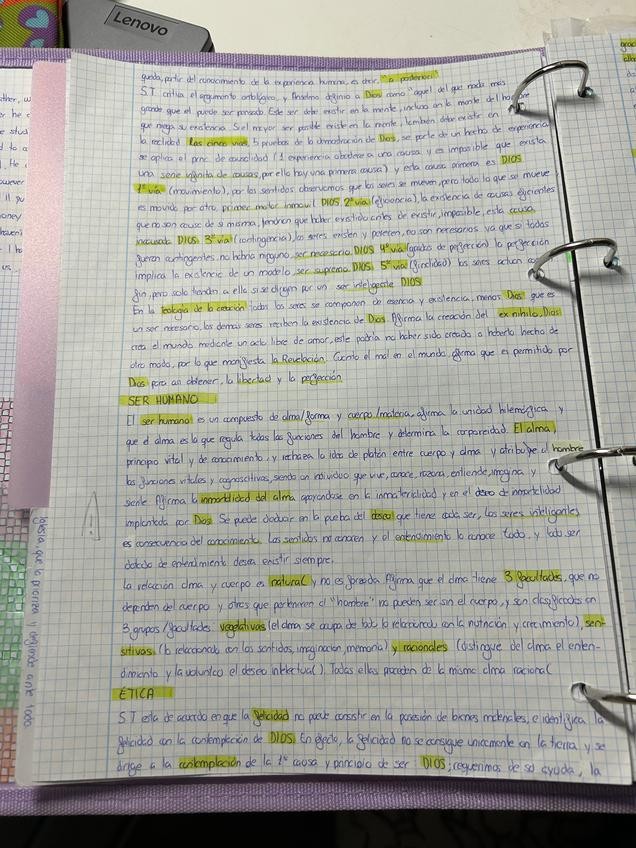 Lenovo
queda, partir del conocimiento de la experiencia humana, es decir, "a posteriori"
S.T critica el argumento ontológico, y Anselmo definio a Dios como "aquel del que nada mas
grande que el puede ser pensado. Este ser debe existir en la mente, incluso en la mente del hombre
que niega su existencia. Si el mayor ser posible existe en la mente, tambien debe existir en
la realidad. Las cinco vias, 5 pruebas de la demostración de Dios, se parte de un hecho de experiencia
se aplica el princ. de causalidad (1 experiencia obedece a una causa y es imposible que exista
una serie infinita de causas, por ello hay una primera causa) y esta causa primera es DIOS
1ª via (movimiento), por los sentidos observamos que los seres se mueven, pero todo lo que se mueve
es movido por otro, primer motor inmovil DIOS. 2ª via (eficiencia), la existencia de causas eficientes
que no son causa de si misma, tendrian que haber existido antes de existir, imposible, esta causa
incausada DIOS. 3ª via (contingencia), los seres existen y perecen, no son necesarios ya que si todos
fueran contingentes no habria ninguno, ser necesario DIOS 4ª via (grados de perfección) la perfección
implica la existencia de un modelo, ser supremo DIOS. 5ª via (finalidad) los seres actuan con
fin, pero solo tienden a ella si se dirigen por un ser inteligente DIOS
En la teologia de la creación todos los seres se componen de esencia y existencia, menos Dios que es
un ser necesario, los demas seres reciben la existencia de Dios. Afirma la creación del ex nihilo, Dios
crea el mundo mediante un acto libre de amor, este podria no haber sido creado o haberlo hecho de
otro modo, por lo que manifiesta la Revelación. Cuanto el mal en el mundo, afirma que es permitido por
Dios para asi obtener, la libertad y la perfección
SER HUMANO
El ser humano es un compuesto de alma/forma y cuerpo/materia, afirma la unidad hilemorfica y
que el alma es la que regula todas las funciones del hombre y determina la corporeidad. El alma,
principio vital y de conocimiento, y rechaza la idea de platón entre cuerpo y alma y atribuye al hombre
las funciones vitales y cognoscitivas, siendo un individuo que vive, conoce, razona, entiende, imagina y
siente. Afirma la inmortalidad del alma apoyandose en la inmaterialidad y en el deseo de inmortalidad
implantada por Dios. Se puede deducir en la prueba del deseo que tiene cada ser, los seres inteligentes
es consecuencia del conocimiento. Los sentidos no conocen y el entendimiento lo conoce todo, y todo ser
dotado de entendimiento desea existir siempre.
La relación alma y cuerpo es natural y no es forzada. Afirma que el alma tiene 3 facultades, que no
dependen del cuerpo y otras que pertenecen al "hombre" no pueden ser sin el cuerpo, y son clasificadas en
3 grupos/facultades: vegetativas (el alma se ocupa de todo lo relacionado con la nutrición y crecimiento), sen-
sitivas (lo relacionado con los sentidos, imaginacion, memoria) y racionales (distingue del alma el enten-
dimiento y la voluntad el deseo intelectual). Todas ellas proceden de la misma alma racional
ÉTICA
S.T esta de acuerdo en que la felicidad no puede consistir en la posesión de bienes materiales, e identifica la
felicidad con la contemplación de DIOS. En efecto, la felicidad no se consigue unicamente en la tierra y se
dirige a la contemplación de la 1ª causa y principio de ser: DIOS; requerimos de su ayuda, la